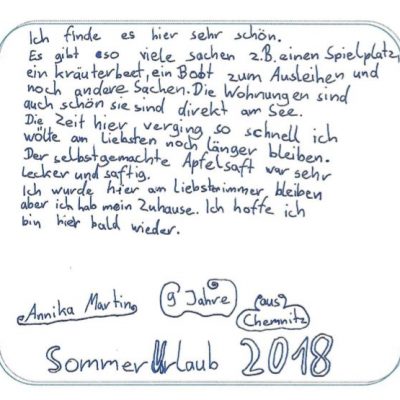 Ich finde es hier sehr schön.
Es gibt so viele sachen z.B. einen Spielplatz,
ein kräuterbeet, ein Boot zum Ausleihen und
noch andere Sachen. Die Wohnungen sind
auch schön sie sind direkt am See.
Die Zeit hier verging so schnell ich
wölte am Liebsten noch länger bleiben.
Der selbstgemachte Apfelsaft war sehr
Lecker und saftig.
Ich wurde hier am Liebsten immer bleiben
aber ich hab mein Zuhause. Ich hoffe ich
bin hier bald wieder.
Annika Martin 9 Jahre aus Chemnitz
SommerUrlaub 2018